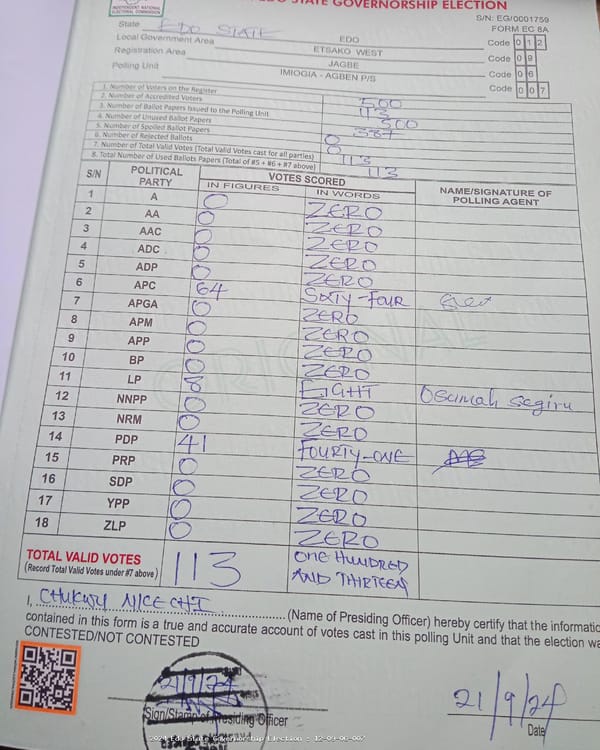 EDO STATE GOVERNORSHIP ELECTION
S/N: EG/0001759
FORM EC 8A
INDEPENDENT NATIONAL ELECTORAL COMMISSION
State EDO STATE
Local Government Area EDO Code 012
Registration Area ETSAKO WEST Code 09
Polling Unit JAGBE Code 06
IMIOGIA - AGBEN P/S Code 007
1. Number of Voters on the Register 500
2. Number of Accredited Voters 113
3. Number of Ballot Papers Issued to the Polling Unit 500
4. Number of Unused Ballot Papers 387
5. Number of Spoiled Ballot Papers 0
6. Number of Rejected Ballots 0
7. Number of Total Valid Votes (Total Valid Votes cast for all parties) 113
8. Total Number of Used Ballots Papers (Total of #5 + #6 + #7 above) 113
S/N POLITICAL PARTY VOTES SCORED NAME/SIGNATURE OF POLLING AGENT
IN FIGURES IN WORDS
1 A 0 ZERO
2 AA 0 ZERO
3 AAC 0 ZERO
4 ADC 0 ZERO
5 ADP 0 ZERO
6 APC 64 SIXTY-FOUR
7 APGA 0 ZERO
8 APM 0 ZERO
9 APP 0 ZERO
10 BP 0 ZERO
11 LP 8 EIGHT Osumah Segiru
12 NNPP 0 ZERO
13 NRM 0 ZERO
14 PDP 41 FOURTY-ONE
15 PRP 0 ZERO
16 SDP 0 ZERO
17 YPP 0 ZERO
18 ZLP 0 ZERO
ORIGINAL
TOTAL VALID VOTES 113 ONE HUNDRED
(Record Total Valid Votes under #7 above) AND THIRTEEN
I, CHUKWU NICE CHI (Name of Presiding Officer) hereby certify that the informatio
contained in this form is a true and accurate account of votes cast in this polling Unit and that the election wa
CONTESTED/NOT CONTESTED
21/9/24
Sign/Stamp of Presiding Officer
21/9/24
Date
2024 Edo State Governorship Election - 12-09-06-007